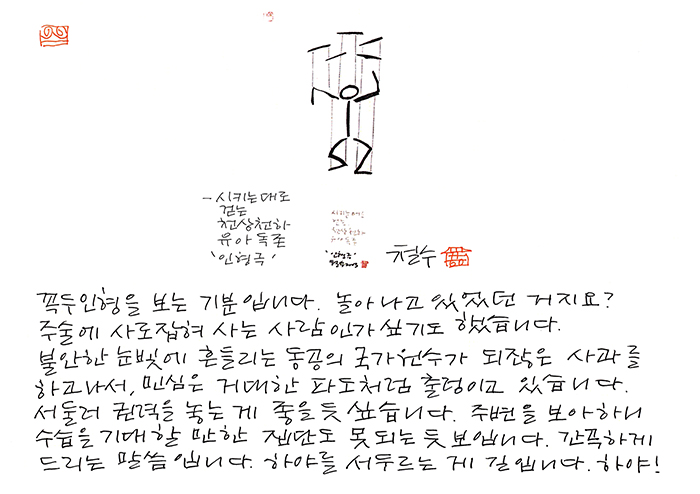 - 시키는대로
걷는
천상천하
유아독존
'인형극'
시키는대로
걷는
천상천하
유아독존
'인형극'
철수
꼭두인형을 보는 기분입니다. 놀아나고 있었던 거지요?
주술에 사로잡혀 사는 사람인가 싶기도 했습니다.
불안한 눈빛에 흔들리는 동공의 국가원수가 되잖은 사과를
하고나서, 민심은 거대한 파도처럼 출렁이고 있습니다.
서둘러 권력을 놓는게 좋을듯 싶습니다. 주변을 보아하니
수습을 기대할 만한 집단도 못되는듯 보입니다. 간곡하게
드리는 말씀입니다. 하야를 서두르는 게 길입니다. 하야!